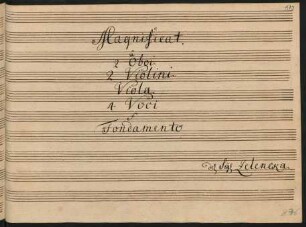 Magnificat.
à
2 Oboi
2 Violini.
Viola
4 Voci
e
Fondamento
del Sigr Zelenka.